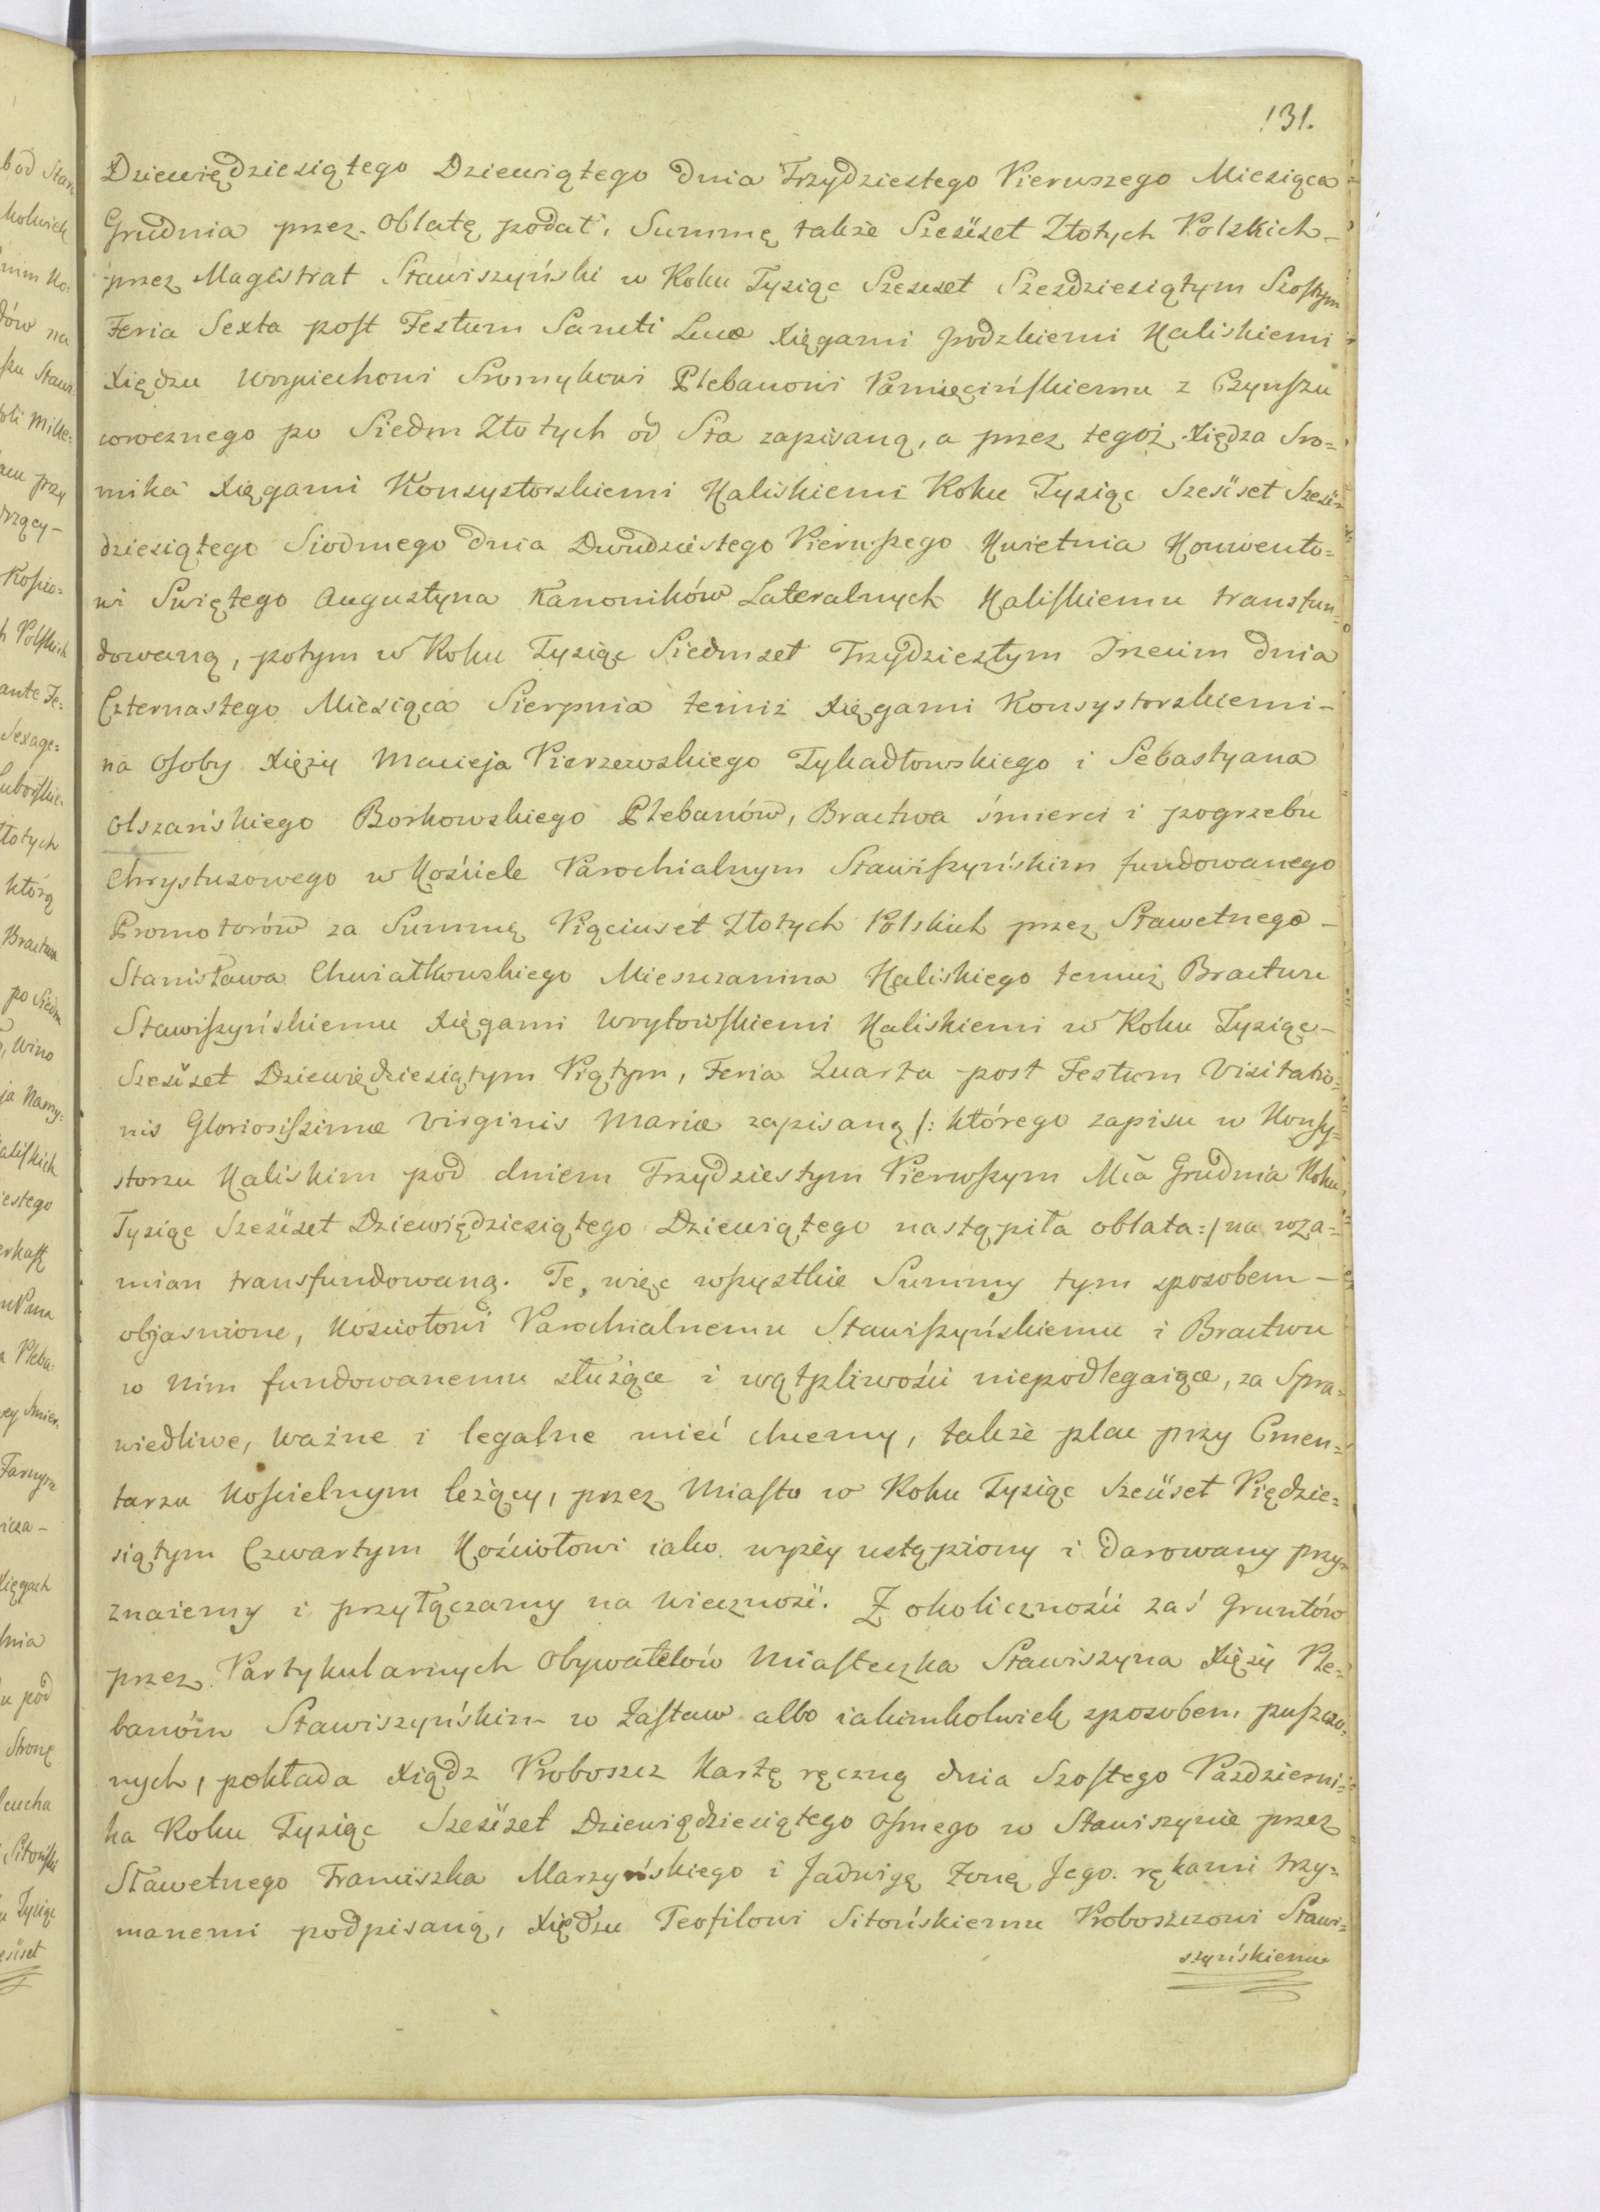 131.
Dziewiędziesiątego Dziewiątego dnia Trzydziestego Pierwszego Miesiąca
Grudnia przez oblatę podał, Summę także Sześiset Złotych Polskich –
przez Magistrat Stawiszyński w Roku Tysiąc Szescset Szesdziesiątym Szostym
Feria Sexta post Festum Sancti Lucæ Xięgami Grodzkiemi Kaliskiemi
Xiędzu Woyciechowi Sromykowi Plebanowi Pamięcińskiemu z Czynszu
corocznego po Siedm Złotych od Sta zapisaną, a przez tegoż Xiędza Sro=
mika Xięgami Konsystorskiemi Kaliskiemi Roku Tysiąc Sześiset Sześć=
dziesiątego Siodmego dnia Dwudziestego Pierwszego Kwietnia Konwento=
wi Swiętego Augustyna Kanoników Lateralnych Kaliskiemu transfun=
dowaną, potym w Roku Tysiąc Siedmset Trzydziestym Trzecim dnia
Czternastego Miesiąca Sierpnia temiż Xięgami Konsystorskiemi –
na osoby Xięży Macieja Pierzewskiego Tykadłowskiego i Sebastyana
Olszańskiego Borkowskiego Plebanów, Bractwa śmierci i pogrzebu
Chrystusowego w Kościele Parochialnym Stawiszyńskim fundowanego
Promotorów za Summę Pięciuset Złotych Polskich przez Sławetnego –
Stanisława Chwiatkowskiego Mieszczanina Kaliskiego temuż Bractwu
Stawiszyńskiemu Xięgami Woytowskiemi Kaliskiemi w Roku Tysiąc –
Sześiset Dziewiędziesiątym Piątym, Feria Quarta post Festum Visitatio=
nis Gloriosissimæ Virginis Mariæ zapisaną /: którego zapisu w Konsy=
storzu Kaliskim pod dniem Trzydziestym Pierwszym Mca Grudnia Roku
Tysiąc Sześiset Dziewiędziesiątego Dziewiątego nastąpiła oblata :/ na wza=
mian transfundowaną. Te, więc wszystkie Summy tym sposobem –
objasnione, Kościołowi Parochialnemu Stawiszyńskiemu i Bractwu
w nim fundowanemu służące i wątpliwości niepodlegaiące, za Spra=
wiedliwe, ważne i legalne mieć chcemy, także plac przy Cmen=
tarzu Kościelnym leżący, przez Miasto w Roku Tysiąc Sześiset Piędzie=
siątym Czwartym Kościołowi iako wyżey ustąpiony i darowany przy=
znaiemy i przyłączamy na wieczność. Z okoliczności zaś Gruntów
przez Partykularnych Obywatelów Miasteczka Stawiszyna Xięży Ple=
banóm Stawiszyńskim w Zastaw albo iakimkolwiek sposobem puszczo=
nych, pokłada Xiądz Proboszcz Kartę ręczną dnia Szostego Pazdzierni=
ka Roku Tysiąc Sześiset Dziewiędziesiątego Osmego w Stawiszynie przez
Sławetnego Franciszka Marzyńskiego i Jadwigę Żonę Jego rękami trzy=
manemi podpisaną, Xiędzu Teofilowi Sitońskiemu Proboszczowi Stawi=
szyńskiemu